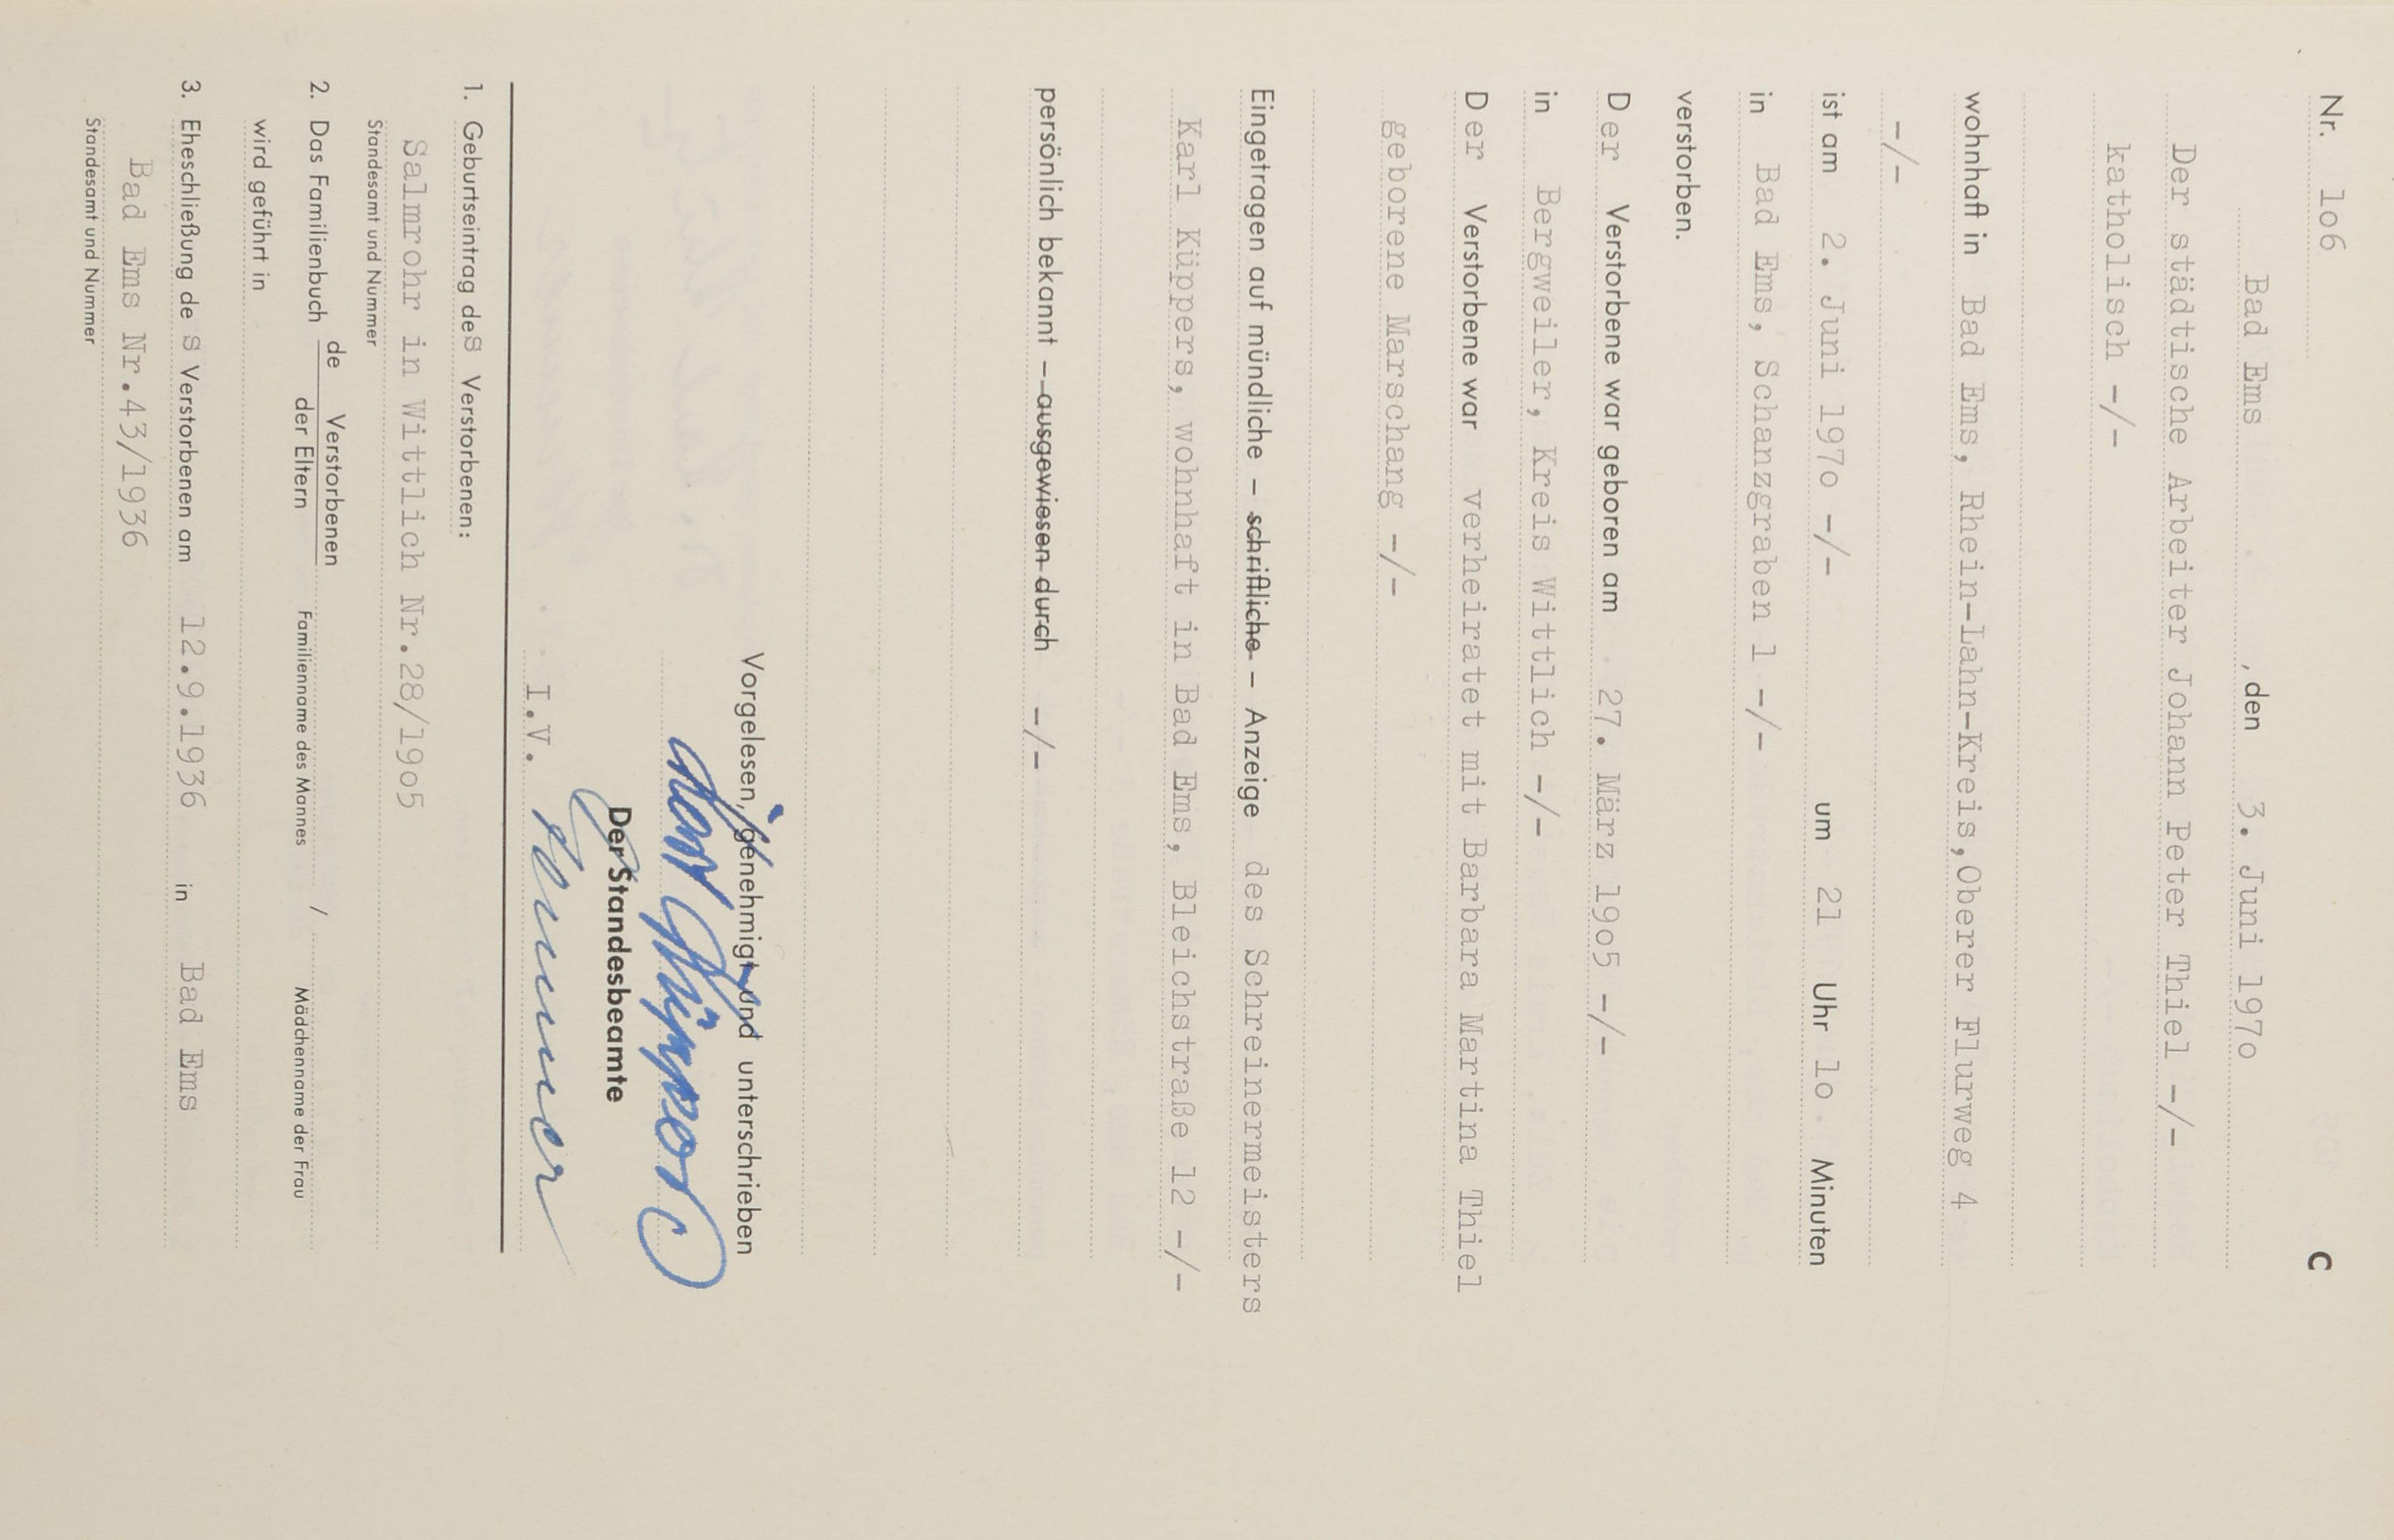 Nr. 1o6 C
Bad Ems , den 3. Juni 197o
Der städtische Arbeiter Johann Peter Thiel -/-
katholisch -/-
wohnhaft in Bad Ems, Rhein-Lahn-Kreis,Oberer Flurweg 4
-/-
ist am 2. Juni 197o -/- um 21 Uhr 1o Minuten
in Bad Ems, Schanzgraben 1 -/-
verstorben.
Der Verstorbene war geboren am 27. März 19o5 -/-
in Bergweiler, Kreis Wittlich -/-
Der Verstorbene war verheiratet mit Barbara Martina Thiel
geborene Marschang -/-
Eingetragen auf mündliche – schriftliche – Anzeige des Schreinermeisters
Karl Küppers, wohnhaft in Bad Ems, Bleichstraße 12 -/-
persönlich bekannt – ausgewiesen durch -/-
Vorgelesen, genehmigt und unterschrieben
Der Standesbeamte
I.V.
1. Geburtseintrag des Verstorbenen:
Salmrohr in Wittlich Nr.28/19o5
Standesamt und Nummer
2. Das Familienbuch de Verstorbenen
der Eltern Familienname des Mannes / Mädchenname der Frau
wird geführt in
3. Eheschließung de s Verstorbenen am 12.9.1936 in Bad Ems
Bad Ems Nr.43/1936
Standesamt und Nummer